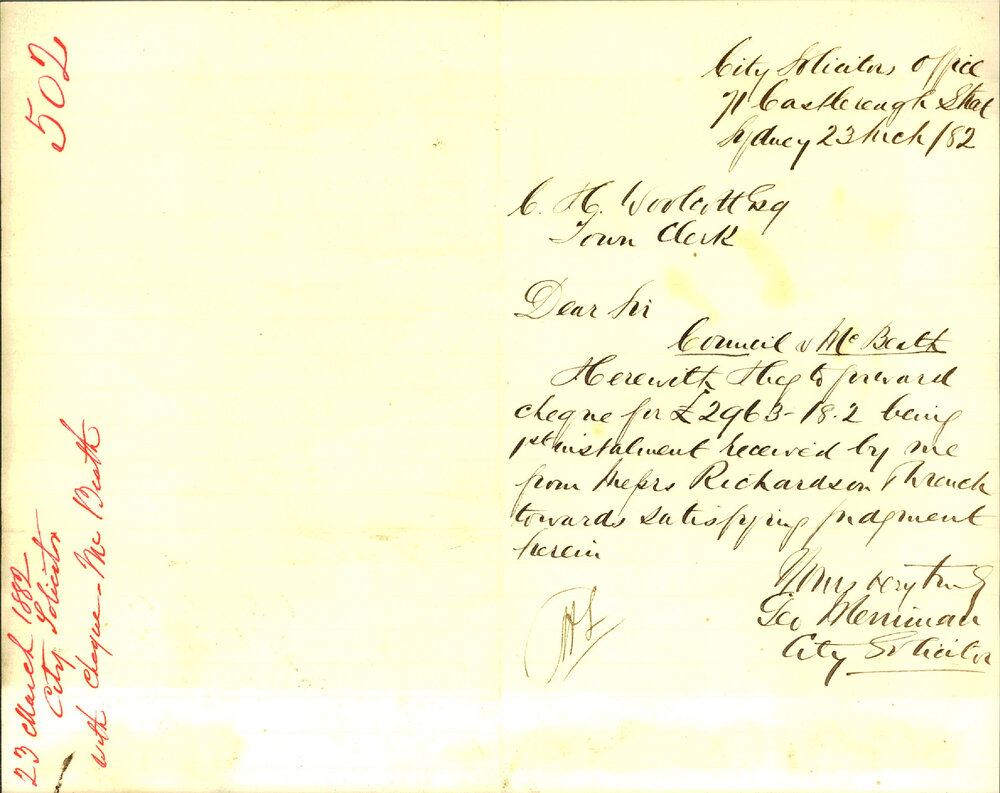 502
23 March 1882
City Solicitor
with cheque - Mc Beath
City Solicitors Office
71 Castlereagh Street
Sydney 23 Mch /82
C. H. Woolcott Esq
Town Clerk
Dear Sir
Council v McBeath
Herewith I beg to forward
cheque for £2963-18.2 being
1st instalment received by me
from Messrs Richardson & Wrench
towards satisfying judgment
herein
Yours very truly
Geo Merriman
City Solicitor